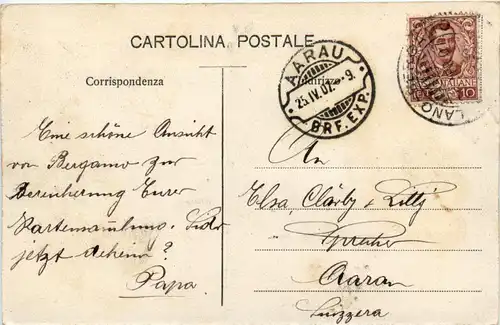 CARTOLINA POSTALE
Corrispondenza
AARAU
25.IV.07.-9.
BRF. EXP.
ITALIANE
10
Eine schöne Ansicht
von Bergamo zur
Bereicherung Eurer
Kartensammlung. Seid Ihr
jetzt daheim?
Papa
An
Elsa, Clärly & Lilly
Sprecher
Aarau
Suizzera